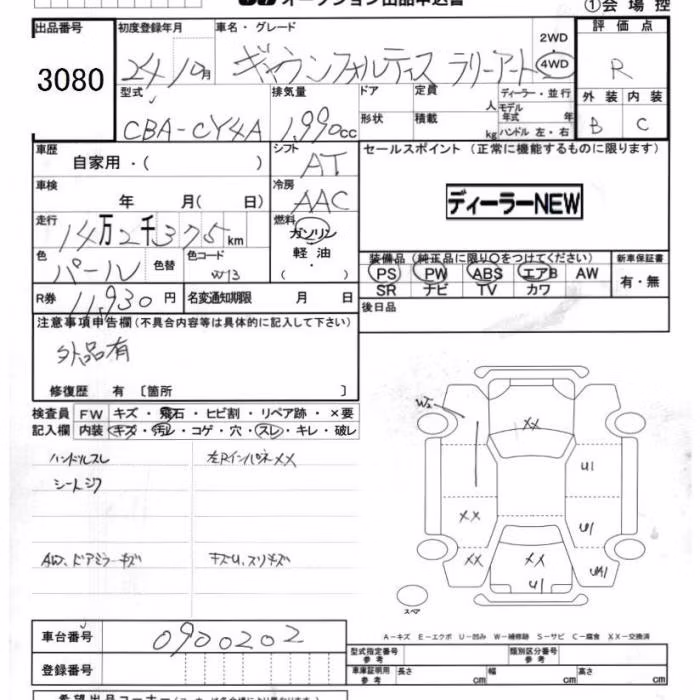 オークション出品申込書
①会場控
出品番号
3080
初度登録年月
24年10月
車名・グレード
ギャランフォルティス ラリーアート
2WD
4WD
評価点
R
型式
CBA-CY4A
排気量
1,990cc
ドア
定員
人
ディーラー・並行
モデル年式 年
形状
積載
kg
ハンドル 左・右
外装
内装
B
C
車歴
自家用・( )
シフト
AT
セールスポイント(正常に機能するものに限ります)
ディーラーNEW
車検
年 月( 日)
冷房
AAC
走行
14万2千375km
燃料
ガソリン
軽油
( )
色
パール
色替
色コード
W13
装備品(純正品に限り○をつけてください)
PS PW ABS エアB AW
SR ナビ TV カワ
新車保証書
有・無
R券
11,930円
名変通知期限 月 日
後日品
注意事項申告欄(不具合内容等は具体的に記入して下さい)
外品有
修復歴 有 〔箇所 〕
検査員記入欄
FW キズ・飛石・ヒビ割・リペア跡・×要
内装 キズ・汚レ・コゲ・穴・スレ・キレ・破レ
ハンドルスレ
左Rインパネ××
シートシワ
AW、ドアミラーキズ
キズU、スリキズ
W2
XX
U1
XX
U1
XX
XX
U1
スペア
A-キズ E-エクボ U-凹み W-補修跡 S-サビ C-腐食 XX-交換済
車台番号
0900202
登録番号
型式指定番号
参考
類別区分番号
参考
車庫証明用
参考
長さ cm
幅 cm
高さ cm
希望出品コーナー